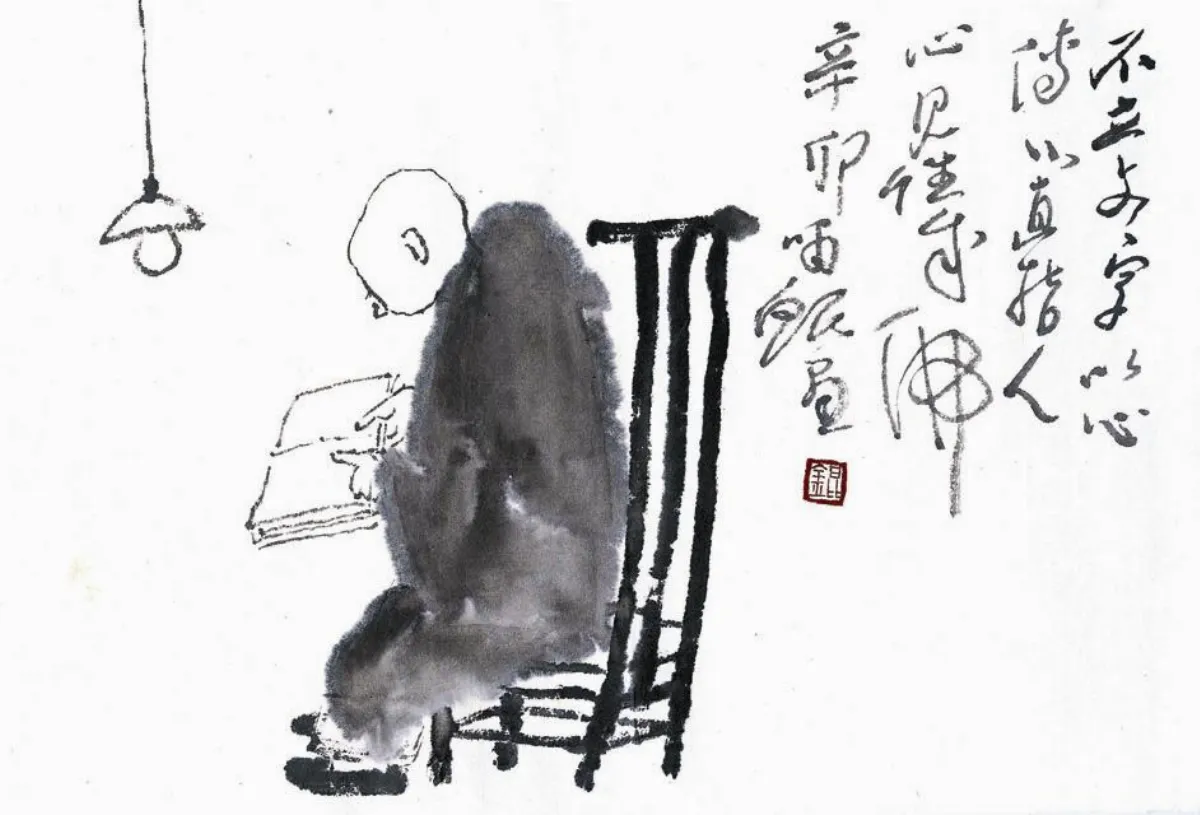 不立文字以心
傳心直指人
心见性成佛
辛卯画
錕